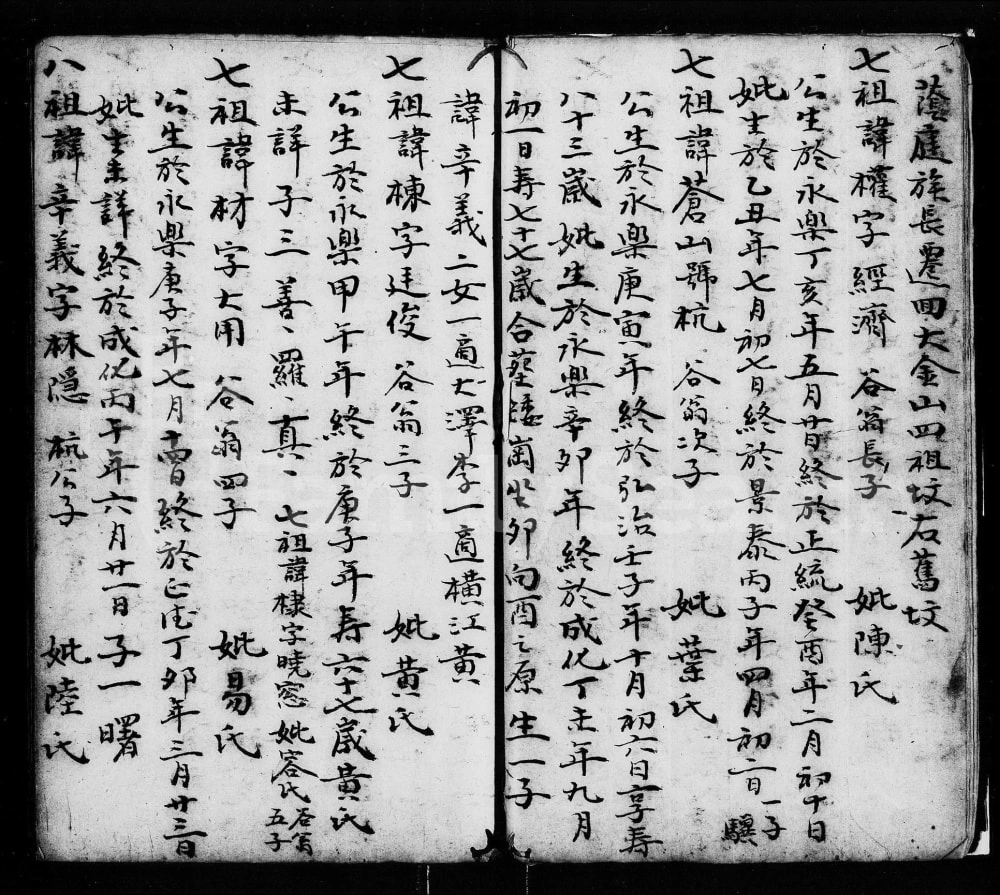 蔭庭族長遷回大金山四祖墳右舊墳
七祖諱權字經濟 谷翁長子 妣陳氏
公生於永樂丁亥年五月廿日終於正統癸酉年二月初十日
妣生於乙丑年七月初七日終於景泰丙子年四月初二日 一子 驥
七祖諱蒼山號杭 谷翁次子 妣葉氏
公生於永樂庚寅年終於弘治壬子年十月初六日享壽
八十三歲 妣生於永樂辛卯年終於成化丁未年九月
初一日寿七十七歲合塟矮崗坐卯向酉之原 生一子
諱辛義 二女一適大澤李一適橫江黄
七祖諱棟字廷俊 谷翁三子 妣黄氏
公生於永樂甲午年終於庚子年寿六十七歲黄氏
未詳 子三 善、羅、真、 七祖諱棣字曉窓 妣容氏 谷翁五子
七祖諱材字大用 谷翁四子 妣易氏
公生於永樂庚子年七月十四日終於正德丁卯年三月廿三日
妣生未詳終於成化丙午年六月廿一日 子一曙
八祖諱辛義字林隱 杭公子 妣陸氏